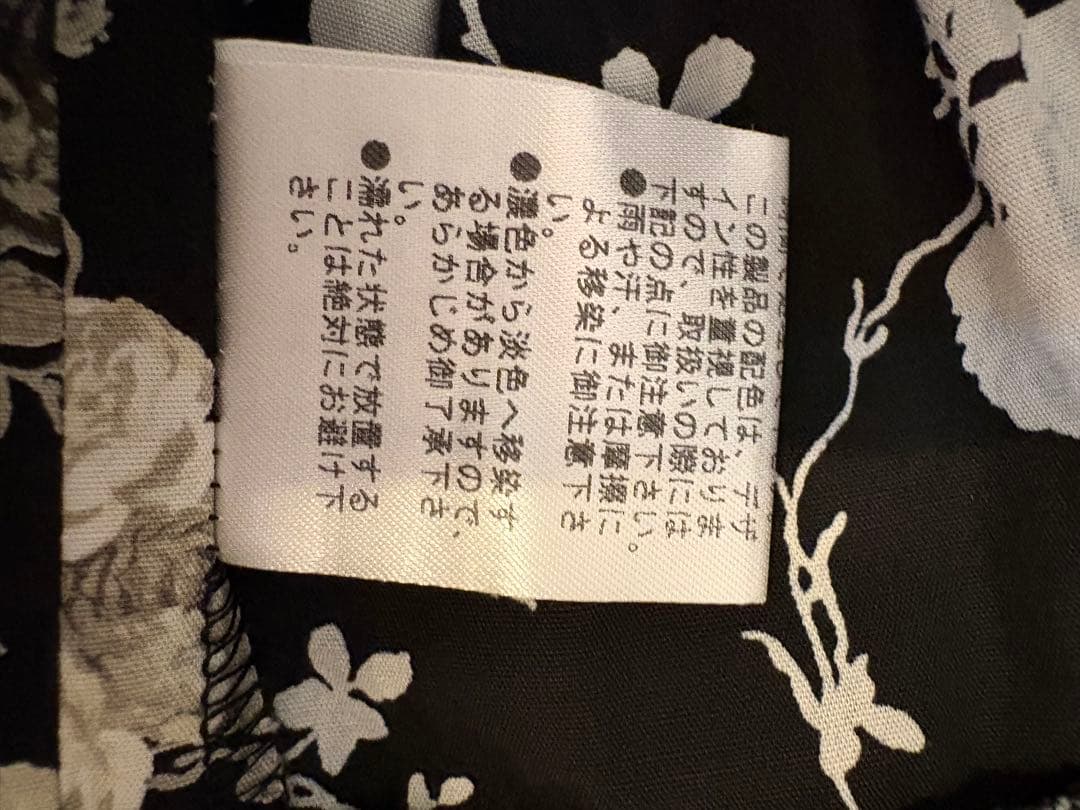 この製品の配色は、デザ
イン性を重視しておりま
すので、取扱いの際には
下記の点に御注意下さい。
●雨や汗、または摩擦に
よる移染に御注意下さ
い。
●濃色から淡色へ移染す
る場合がありますので、
あらかじめ御了承下さ
い。
●濡れた状態で放置する
ことは絶対にお避け下
さい。